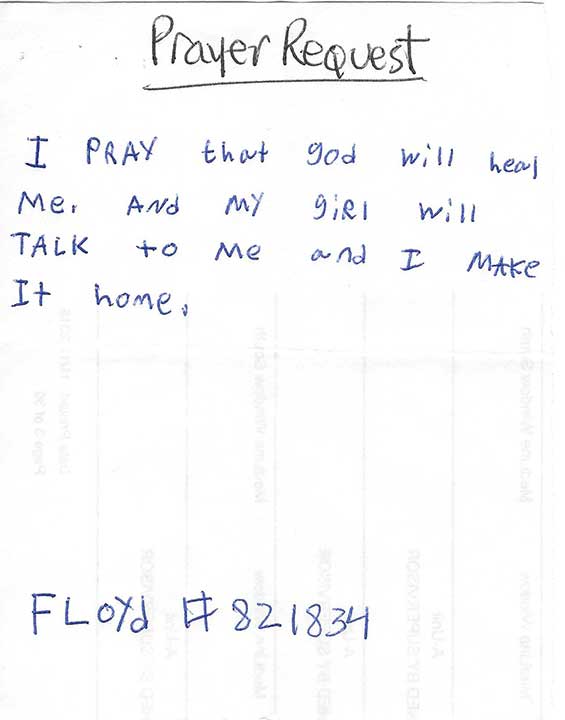 Prayer Request
I PRAY that god will heal
Me. AND MY giRl will
TALK to Me and I MAKE
It home.
FLOyd # 821834